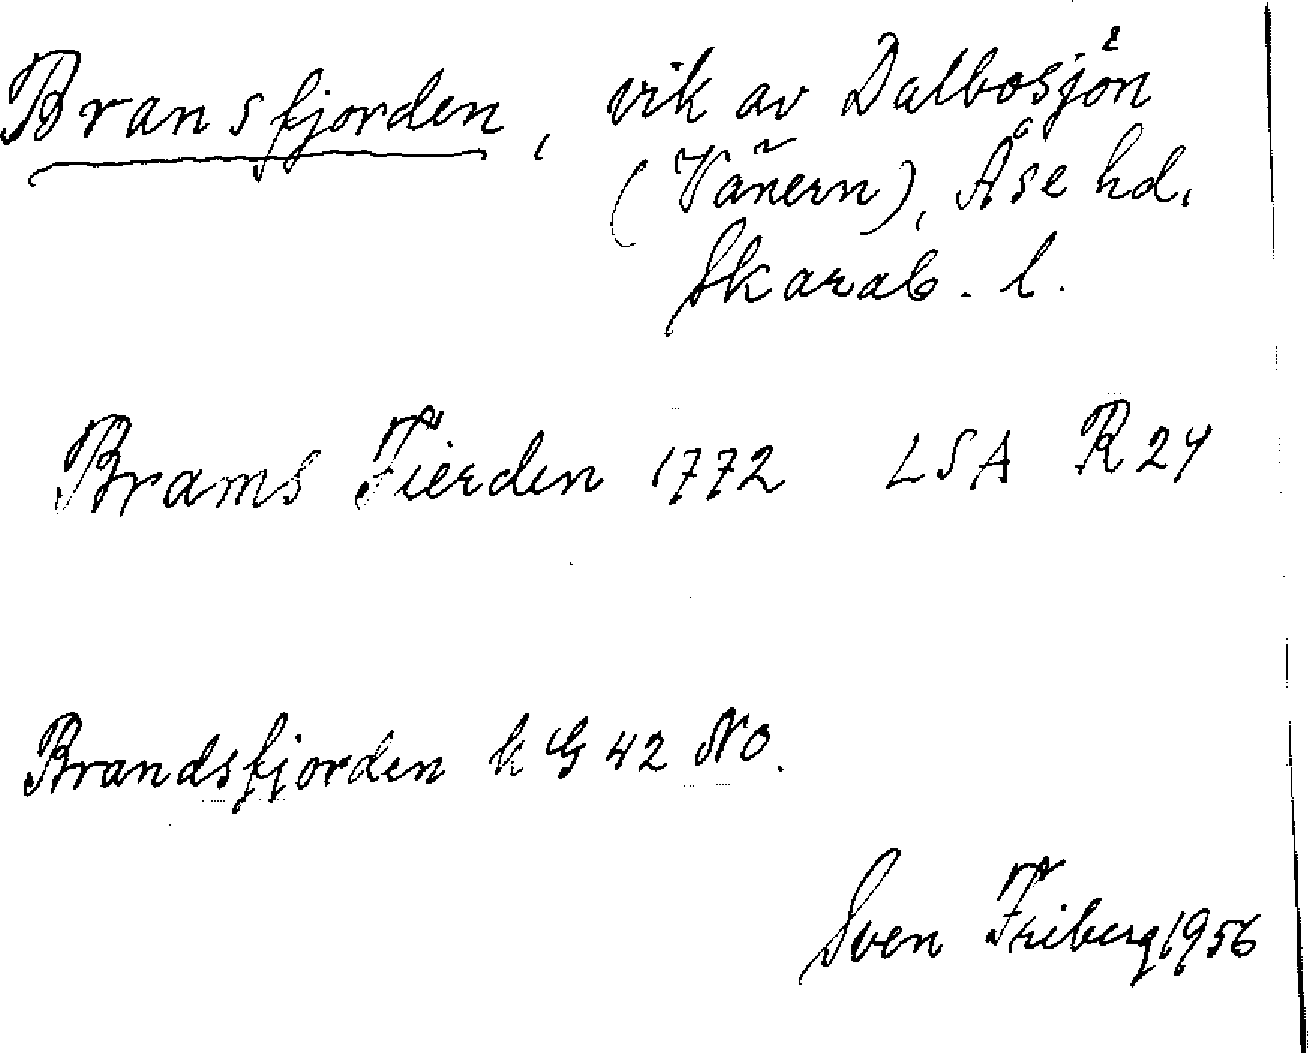 Bransfjorden, vik av Dalbosjön
(Vänern), Åse hd.
Skarab. l.
Brams Fierden 1772 LSA R24
Brandsfjorden k G 42 NO.
Sven Friberg 1956